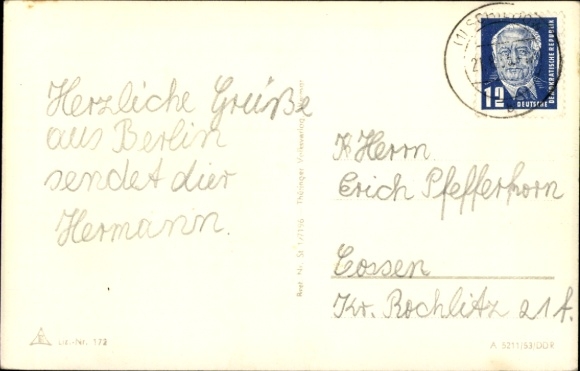 Herzliche Grüße
aus Berlin
sendet dier
Hermann.
Lic.-Nr. 172
Best. Nr. St 1/7196 Thüringer Volksverlag
12
DEUTSCHE
DEMOKRATISCHE REPUBLIK
Herrn
Erich Pfefferkorn
Cossen
Kr. Rochlitz 21 f.
A 5211/53/DDR